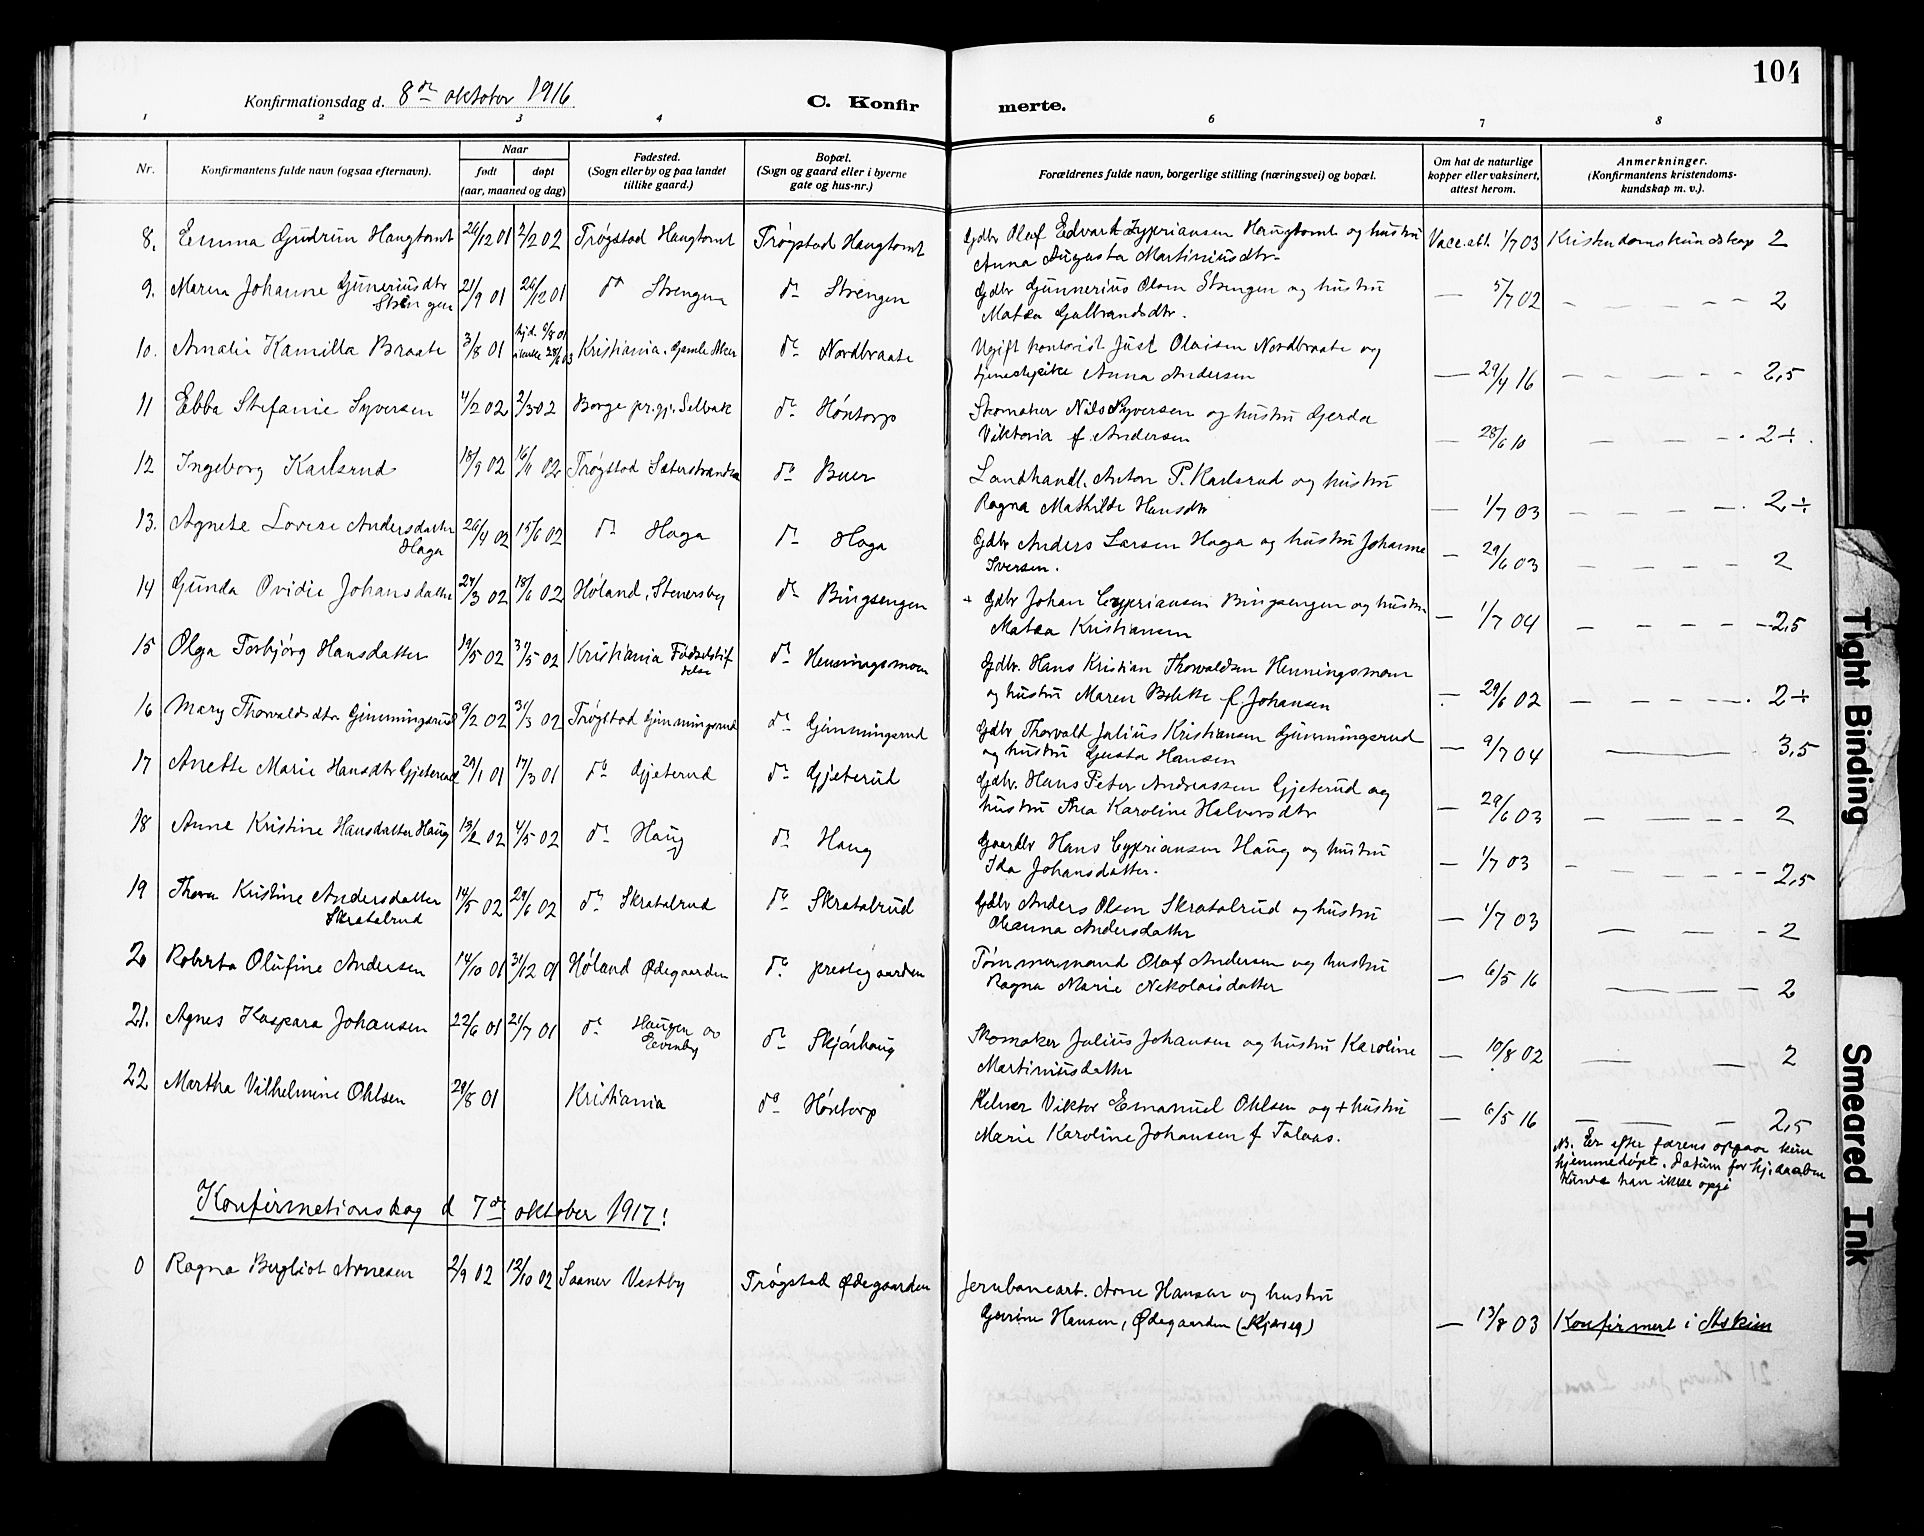 104
Konfirmationsdag d. 8de oktober 1916
C. Konfir merte.
1 2 3 4 6 7 8
Nr.
Konfirmantens fulde navn (ogsaa efternavn).
Naar
født døpt
(aar, maaned og dag)
Fødested.
(Sogn eller by og paa landet
tillike gaard.)
Bopæl.
(Sogn og gaard eller i byerne
gate og hus-nr.)
Forældrenes fulde navn, borgerlige stilling (næringsvei) og bopæl.
Om hat de naturlige
kopper eller vaksinert,
attest herom.
Anmerkninger.
(Konfirmantens kristendoms-
kundskap m. v.).
8. Emma Gudrun Haugtomt 26/12 01 2/2 02 Trøgstad Haugtomt Trøgstad Haugtomt Gdbr Olaf Edvart Zypriansen Haugtomt og hustru Vacc.att. 1/7 03 Kristendomskundskap 2
Anna Augusta Martiniusdtr
9. Maren Johanne Guneriusdtr 21/9 01 26/12 01 do Strengen do Strengen Gdbr Gunnerius Olsen Strengen og hustru — 5/7 02 — — — — 2
Strengen Matea Gulbrandsdtr.
10. Amalie Kamilla Braate 3/8 01 hjd. 6/8 01 Kristiania. Gamle Aker do Nordbraate Ugift kontorist Just Olaisen Nordbraate og
tjenestepike Anna Andersen — 29/4 16 — — — — 2,5
11 Ebba Stefanie Syversen 4/2 02 2/3 02 Borge pr.gj. Selbak do Høntorp Skomaker Nils Syversen og hustru Gerda
Viktoria f. Andersen — 28/6 10 — — — 2÷.
12 Ingeborg Karlsrud 18/9 02 16/11 02 Trøgstad Sæterstranden do Buer Landhandl. Anton P. Karlsrud og hustru
Ragna Mathilde Hansdtr — 1/7 03 — — — — 2÷
13. Agnete Lovise Andersdatter 26/4 02 15/6 02 do Haga do Haga Gdbr Anders Larsen Haga og hustru Johanne — 29/6 03 — — — — 2
Haga Iversen.
14 Gunda Ovidie Johansdatter 24/3 02 18/6 02 Høland, Stenersby do Bingsengen + Gdbr Johan Cyprianssen Bingsengen og hustru
Matea Kristiansen — 1/7 04 — — — — 2,5
15 Olga Torbjørg Hansdatter 19/5 02 31/5 02 Kristiania Fødselstif do Henningsmoen Gdbr. Hans Kristian Thorvaldsen Henningsmoen
telse og hustru Maren Bolette f. Johansen — 29/6 02 — — — — 2÷
16 Mary Thorvaldsdtr Gimmingsrud 9/2 02 31/3 02 Trøgstad Gimmingsrud do Gimmingsrud Gdbr Thorvald Julius Kristiansen Gimmingsrud
og hustru Gusta Hansen — 9/7 04 — 3,5
17 Anette Marie Hansdtr Gjeterud 29/1 01 17/3 01 do Gjeterud do Gjeterud Gdbr. Hans Peter Andreassen Gjeterud og
hustru Thea Karoline Halvorsdtr — 29/6 03 — — — — 2
18 Anne Kristine Hansdatter Haug 13/2 02 4/5 02 do Haug do Haug Gaardbr Hans Cypriansen Haug og hustru
Ida Johansdatter. — 1/7 03 — — — — 2,5
19 Thora Kristine Andersdatter 14/5 02 29/6 02 do Skratalrud do Skratalrud Gdbr Anders Olsen Skratalrud og hustru — 1/7 03
Skratalrud Oleanna Andersdatter — — — 2
20 Roberta Olufine Andersen 14/10 01 31/12 01 Høland Ødegaarden do prestegaarden Tømmermand Olaf Andersen og hustru
Ragna Marie Nikolaisdatter — 6/5 16 — — 2
21. Agnes Kaspara Johansen 22/6 01 21/7 01 do Haugen do Skjørhaug Skomaker Julius Johansen og hustru Karoline
Martiniusdatter — 10/8 02 — — 2
22 Martha Vilhelmine Ohlsen 29/8 01 Kristiania do Høntorp Kelner Viktor Emanuel Ohlsen og + hustru
Marie Karoline Johansen f Talaas. — 6/5 16 — — — 2,5
NB. Er efter farens opgave kun
hjemmedøpt. Datum for hj.daaben
kunde han ikke opgi
Konfirmationsdag d 7de oktober 1917!
0 Ragna Bergliot Arnesen 2/9 02 12/10 02 Saaner Vestby Trøgstad Ødegaarden Jernbanearb. Arne Hansen og hustru
Hansen, Ødegaarden — 13/8 03 Konfirmert i Askim
Tight Binding
Smeared Ink